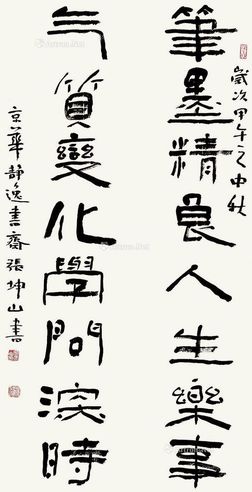 歲次甲午之中秋
筆墨精良人生樂事
气質變化學問深時
京華靜逸書齋張坤山書